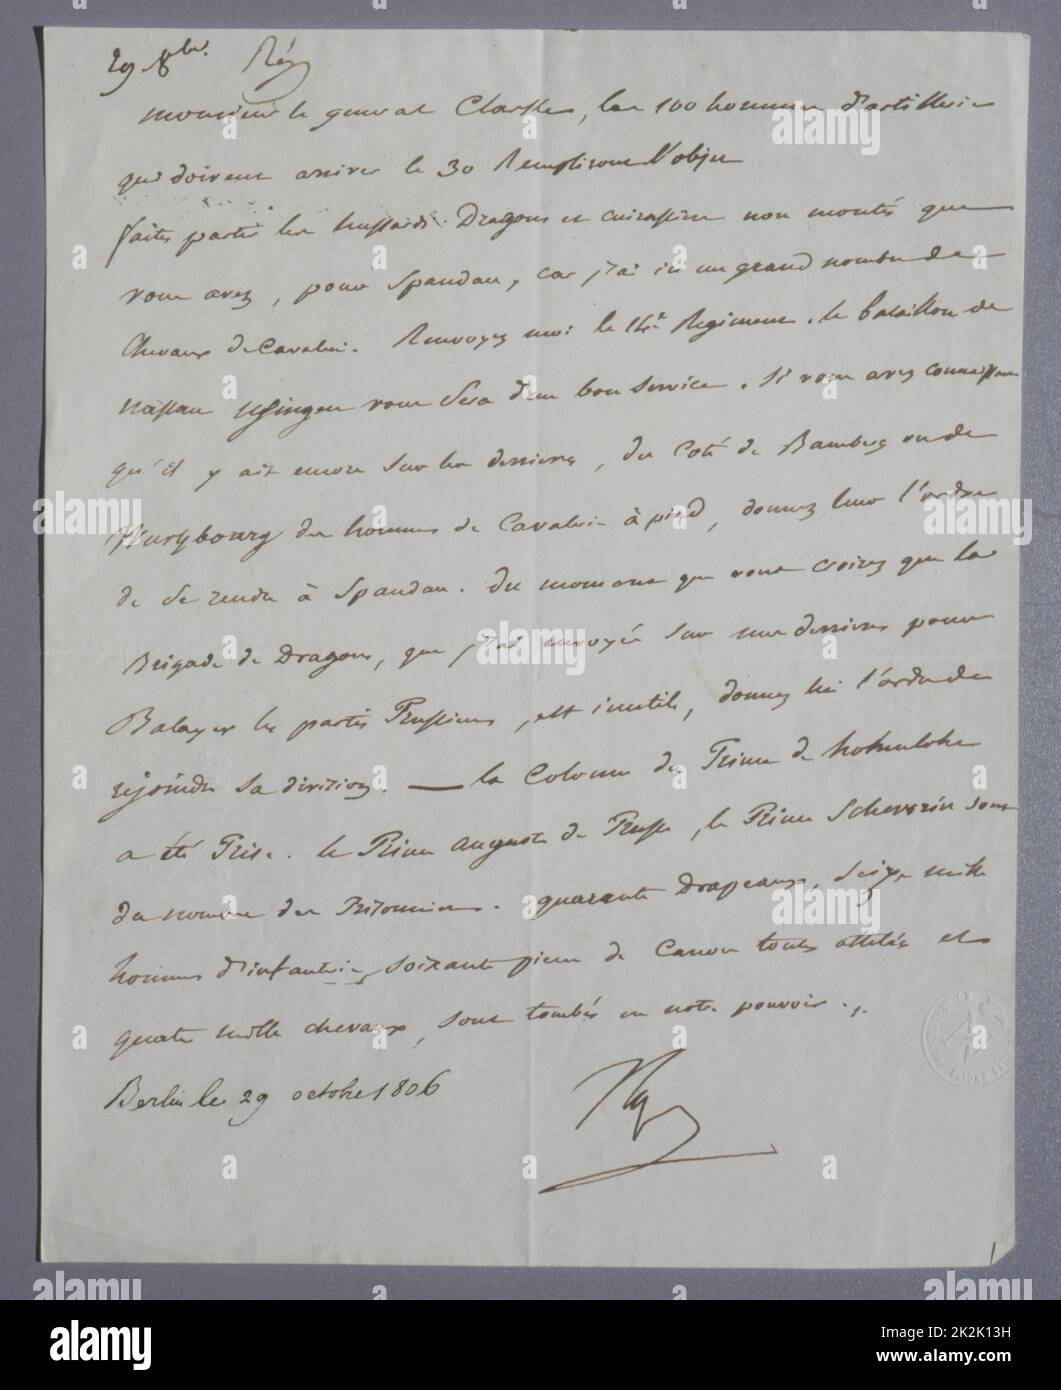 29 8bre. Rép
Monsieur le general Clarke, les 100 hommes d'artillerie
qui doivent arriver le 30 Rempliront l'objet
faites partir les hussards Dragons et cuirassiers non montés que
vous avez, pour Spandau, car j'ai ici un grand nombre de
Chevaux de Cavalerie. Renvoyez moi le 14e Regiment. le bataillon de
nassau Usingen vous Sera d'un bon Service. Si vous avez connaissance
qu'il y ait encore Sur les derrieres, du Coté de Bamberg ou de
Wurtzbourg des hommes de Cavalerie à pied, donnez leur l'ordre
de Se rendre à Spandau. Du moment que vous croirez que la
Brigade de Dragons, que j'ai envoyée Sur mes derrieres pour
Balayer les partis Prussiens, est inutile, donnez lui l'ordre de
rejoindre Sa division. — la Colonne du Prince de hohenlohe
a été Prise. le Prince auguste de Prusse, le Prince Schverin sont
du nombre des Prisonniers. quarante Drapeaux, Seize mille
hommes d'infanterie, soixante pieces de Canon toutes attelées et
quatre mille chevaux, sont tombés en notre pouvoir.
Berlin le 29 octobre 1806
Np
1
alamy
a
Image ID: 2K2K13H
www.alamy.com